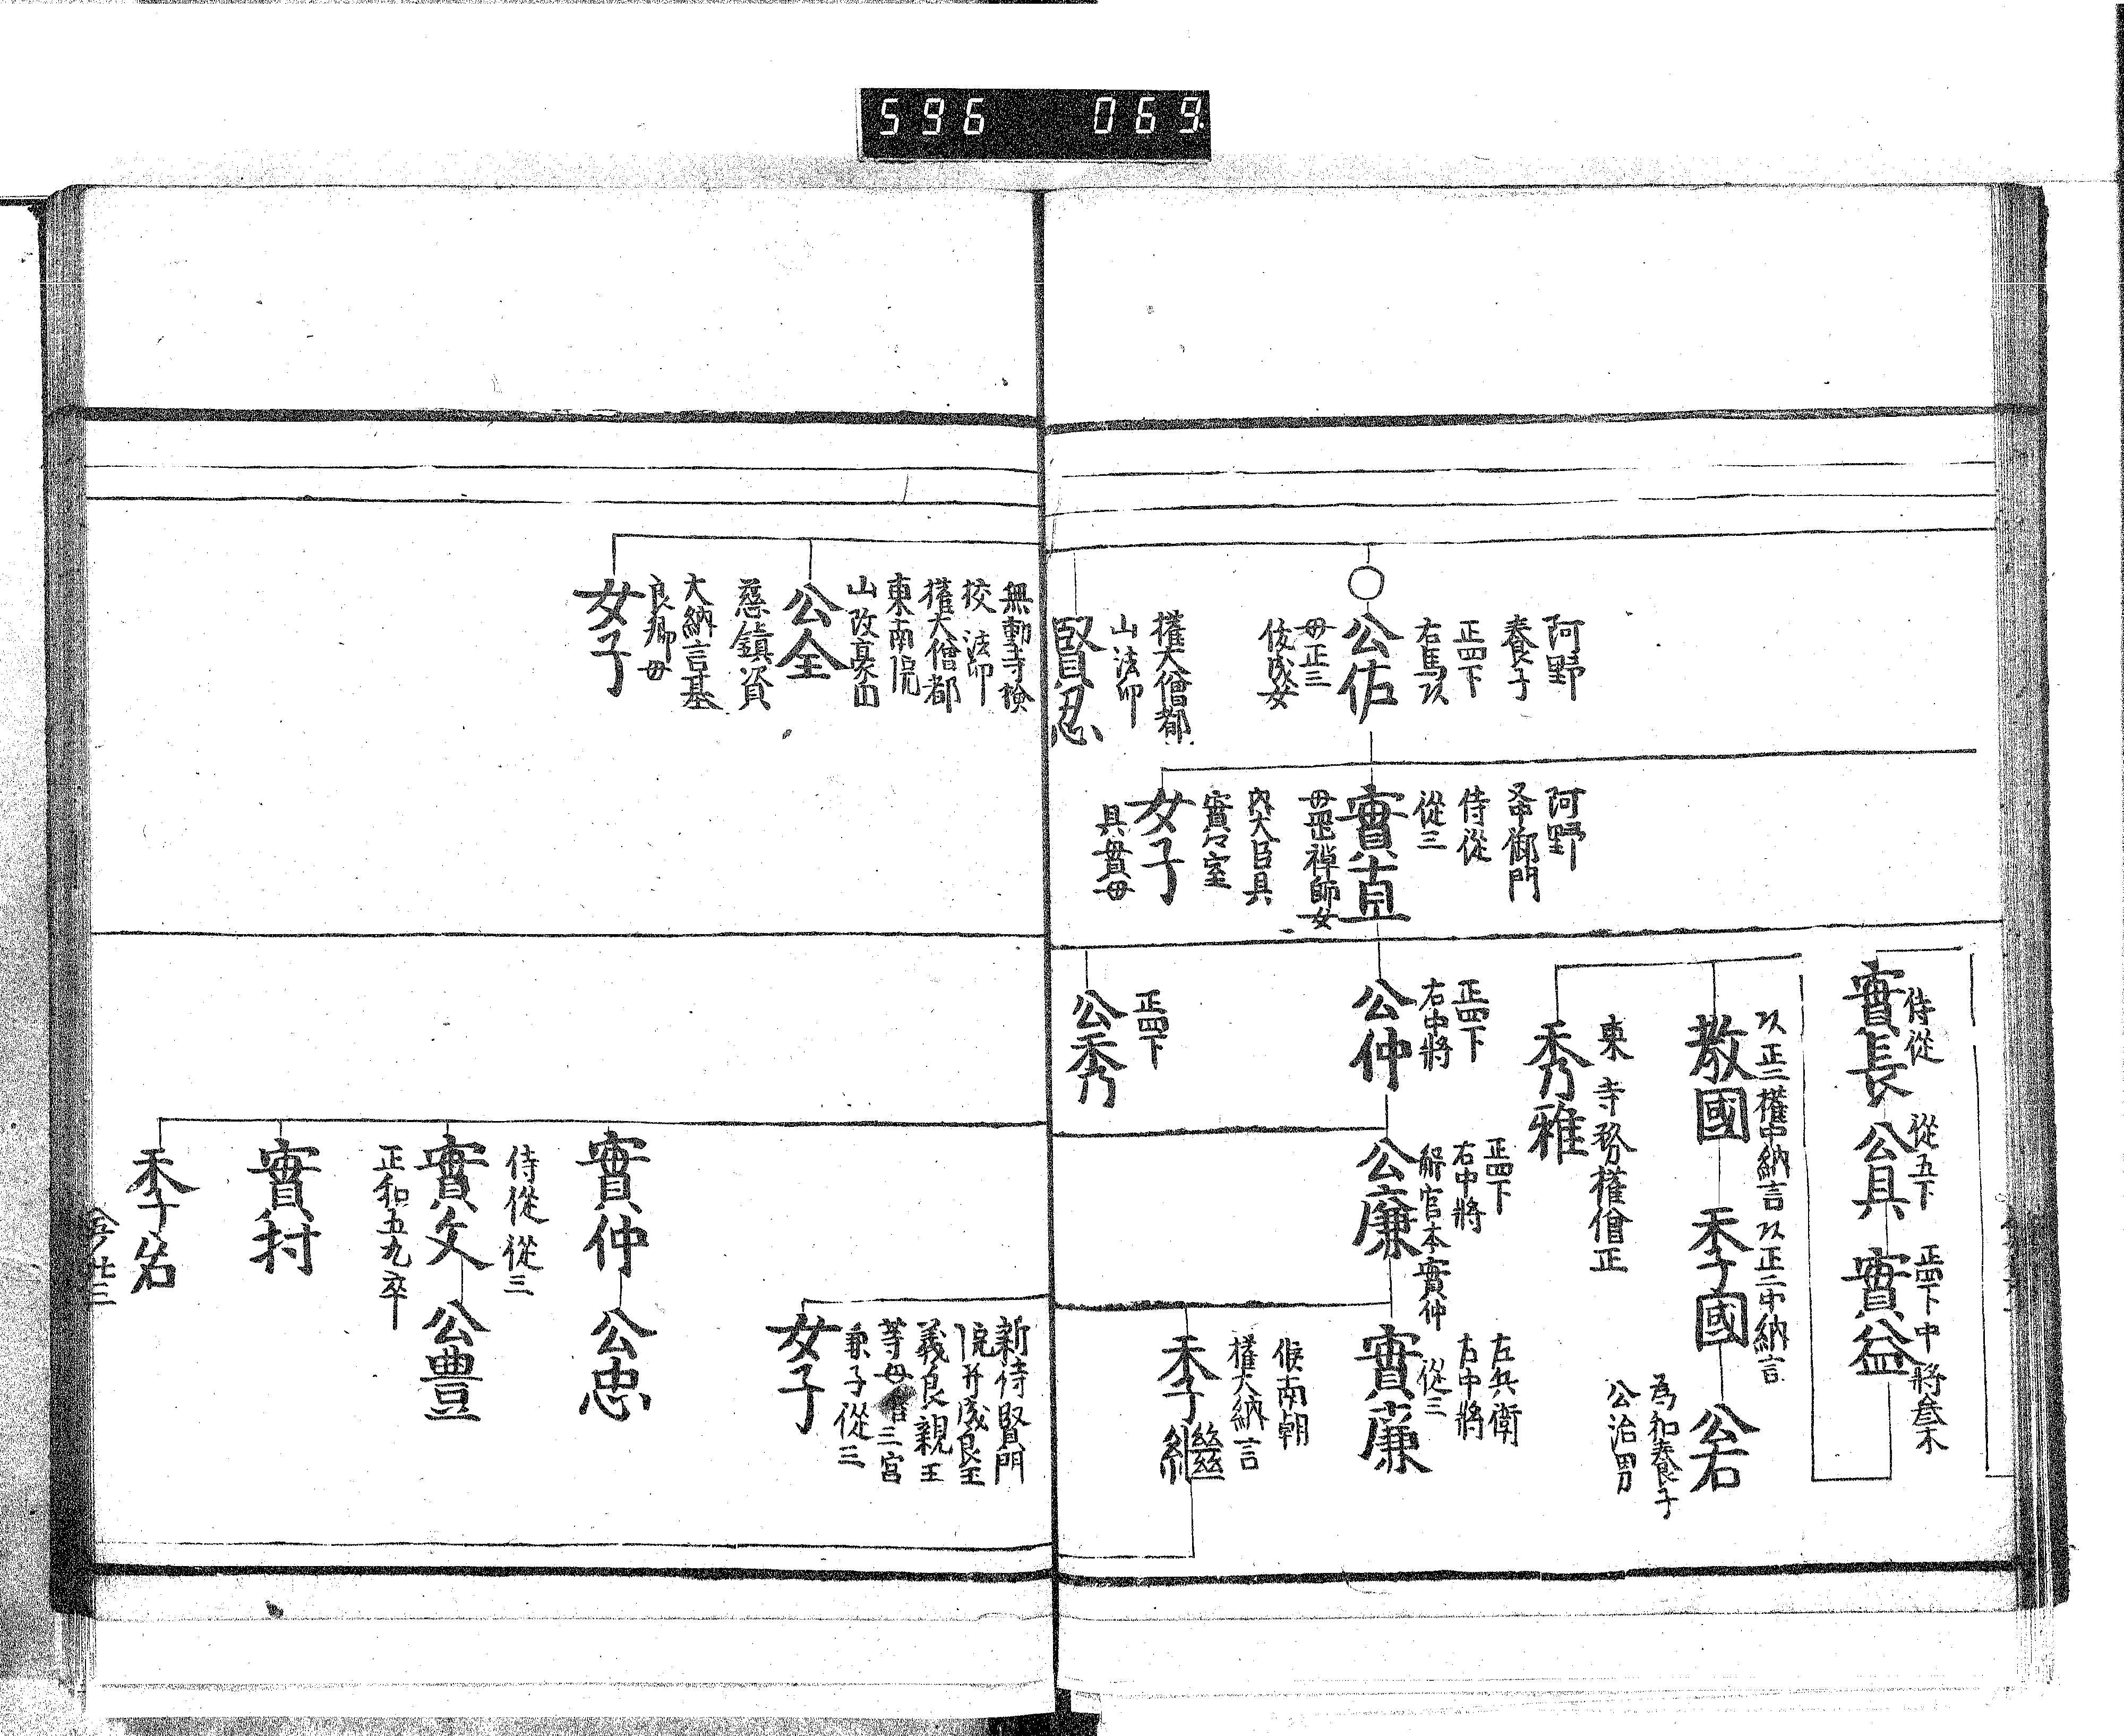 596 069
阿野
養子
正四下
右馬頭
公佐
母正三
俊成女
權大僧都
山法印
賢忍
阿野
侍從
從三
實直
母罡禅師女
內大臣具
實公室
女子
具實母
侍從
實長
從五下
公具
正四下中將
實益
正二權中納言
教國
正二中納言
季國
公右
為和養子
公治男
東寺務權僧正
秀雅
正四下
右中將
公仲
正四下
右中將
解官本實仲
公廉
左兵衛
右中將
從三
實廉
候南朝
權大納言
季繼
正四下
公秀
無動寺檢
校法印
權大僧都
東南院
公全
慈鎮資
大納言基
良卿母
女子
新待賢門
院并成良王
義良親王
等母准三宮
兼子從三
女子
實仲
公忠
侍從從三
實文
正和五九卒
公豊
實村
季